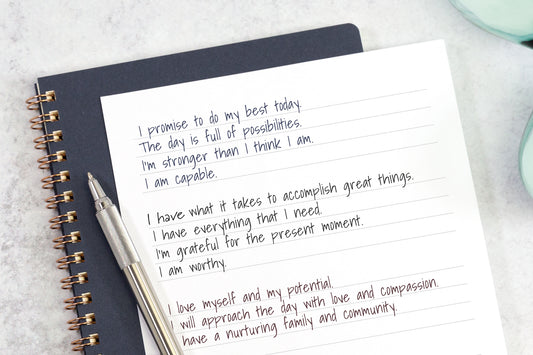 I promise to do my best today.
The day is full of possibilities.
I'm stronger than I think I am.
I am capable.
I have what it takes to accomplish great things.
I have everything that I need.
I'm grateful for the present moment.
I am worthy.
I love myself and my potential.
I will approach the day with love and compassion.
I have a nurturing family and community.